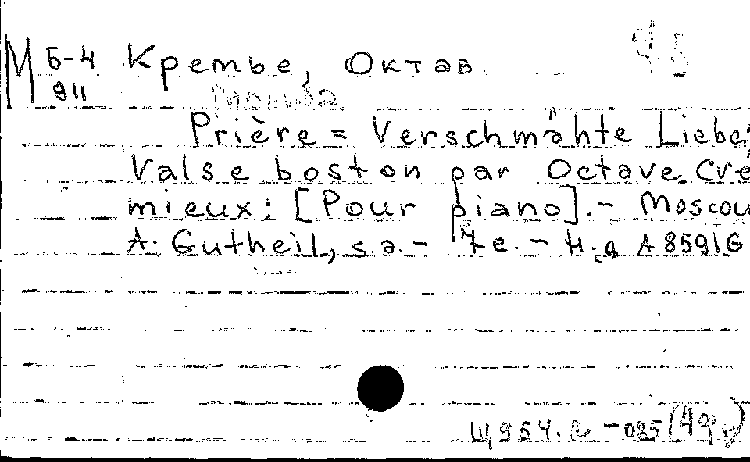 М Б-4 Кремье, Октав
911
Prière = Verschmähte Liebe:
Valse boston par Octave Cre
mieux: [Pour piano]. - Moscou
A. Gutheil, s.a. - 7 e. - Н.д. A 8591 G